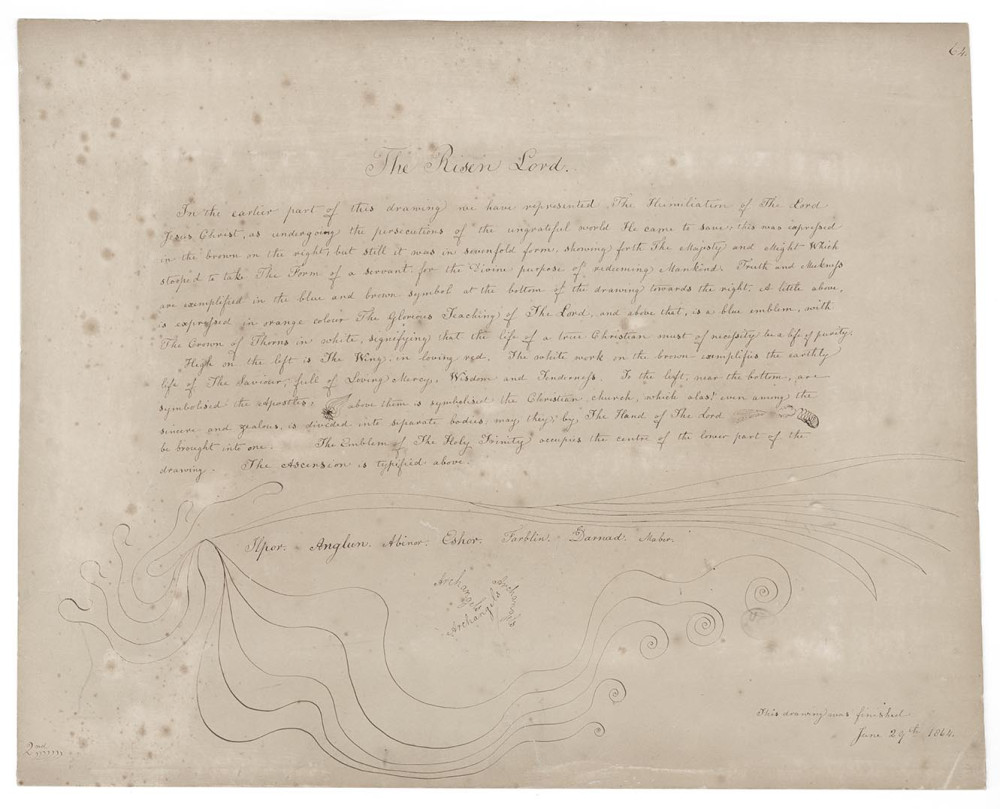 64.
The Risen Lord.
In the earlier part of this drawing we have represented The Humiliation of The Lord
Jesus Christ, as undergoing the persecutions of the ungrateful world He came to save; this was expressed
in the brown on the right, but still it was in sevenfold form, showing forth The Majesty and Might Which
stooped to take The Form of a servant for the Divine purpose of redeeming Mankind. Truth and Meekness
are exemplified in the blue and brown symbol at the bottom of the drawing towards the right. A little above,
is expressed in orange colour The Glorious Teaching of The Lord, and above that, is a blue emblem, with
The Crown of Thorns in white, signifying that the life of a true Christian must of necessity be a life of purity.
High on the left is The Wing in loving red. The white work on the brown exemplifies the earthly
life of The Saviour, full of Loving Mercy, Wisdom and Tenderness. To the left, near the bottom, are
symbolised the Apostles; above them is symbolised the Christian church, which alas! even among the
sincere and zealous, is divided into separate bodies, may they, by, The Hand of The Lord
be brought into one. The Emblem of The Holy Trinity occupies the centre of the lower part of the
drawing. The Ascension is typified above.
Anglun. Abinor. Eshor. Darnad.
Archangels
Archangels
Archangels
This drawing was finished
June 29th 1864.
2nd